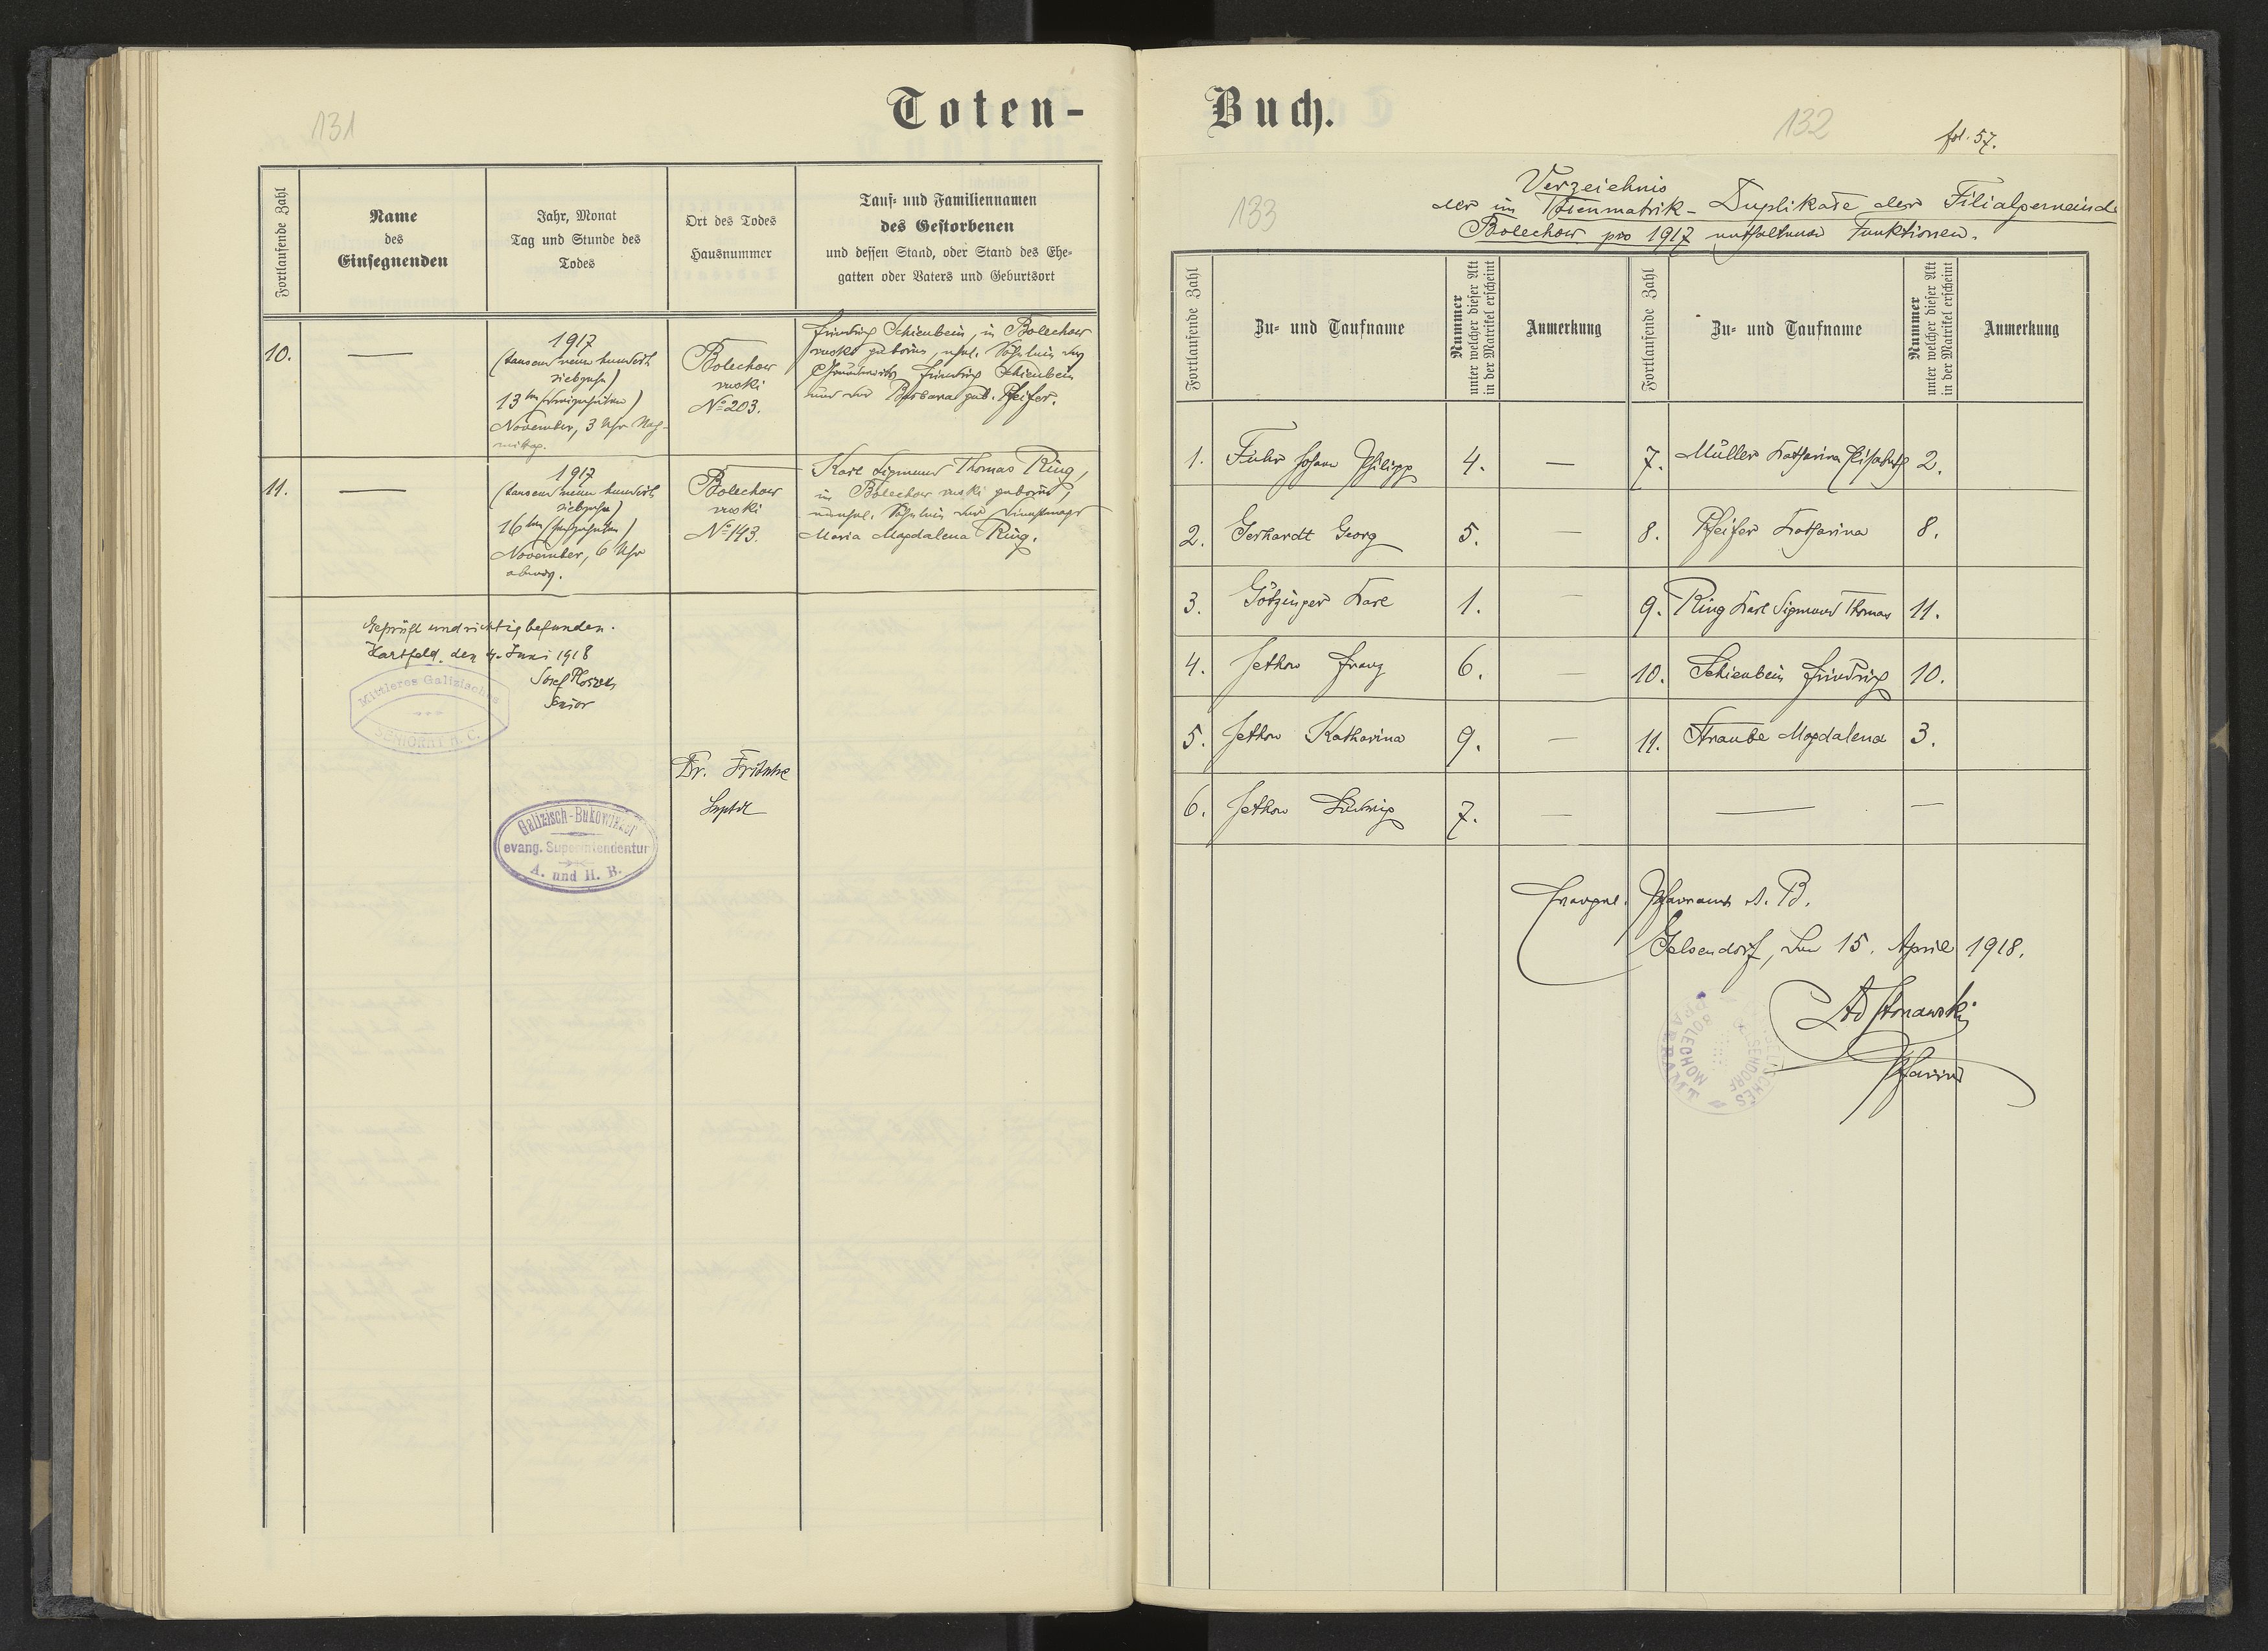 131
Toten-
Fortlaufende Zahl
Name
des
Einsegnenden
Jahr, Monat
Tag und Stunde des
Todes
Ort des Todes
Hausnummer
Tauf- und Familiennamen
des Gestorbenen
und dessen Stand, oder Stand des Ehe-
gatten oder Vaters und Geburtsort
10.
—
1917
(tausend neun hundert
siebzehn)
13ten (dreizehnten)
November, 3 Uhr Nach-
mittag.
Bolechow
ruski
No 203.
Friedrich Schienbein, in Bolechow
ruski geboren, ehel. Söhnlein des
Friedrich Schienbein
und der Barbara geb. Pfeifer.
11.
—
1917
(tausend neun hundert
siebzehn)
16ten (sechzehnten)
November, 6 Uhr
abends.
Bolechow
ruski
No 143.
Karl Sigmund Thomas Ring,
in Bolechow ruski geboren,
unehel. Söhnlein der Dienstmagd
Maria Magdalena Ring.
Geprüft und richtig befunden.
Hartfeld, den 4. Juni 1918
Josef
Senior
Mittleres Galizisches
SENIORAT H. C.
Dr. Fritsche
Suptdt
Galizisch-Bukowinaer
evang. Superintendentur
A. und H. B.
Buch.
132
fol. 57.
133
Verzeichnis
der im Totenmatrik-Duplikate der Filialgemeinde
Bolechow pro 1917 enthaltenen Funktionen.
Fortlaufende Zahl
Zu- und Taufname
Nummer
unter welcher dieser Akt
in der Matrikel erscheint
Anmerkung
Fortlaufende Zahl
Zu- und Taufname
Nummer
unter welcher dieser Akt
in der Matrikel erscheint
Anmerkung
1. Fuhr Johann Philipp 4. — 7. Müller Katharina Elisabeth 2.
2. Gerhardt Georg 5. — 8. Pfeifer Katharina 8.
3. Götzinger Karl 1. — 9. Ring Karl Sigmund Thomas 11.
4. Jethon Franz 6. — 10. Schienbein Friedrich 10.
5. Jethon Katharina 9. — 11. Straube Magdalena 3.
6. Jethon Ludwig 7. — — —
Evangel. Pfarramt A. B.
Gelsendorf, den 15. April 1918.
Pfarrer
PFARRAMT
BOLECHOW